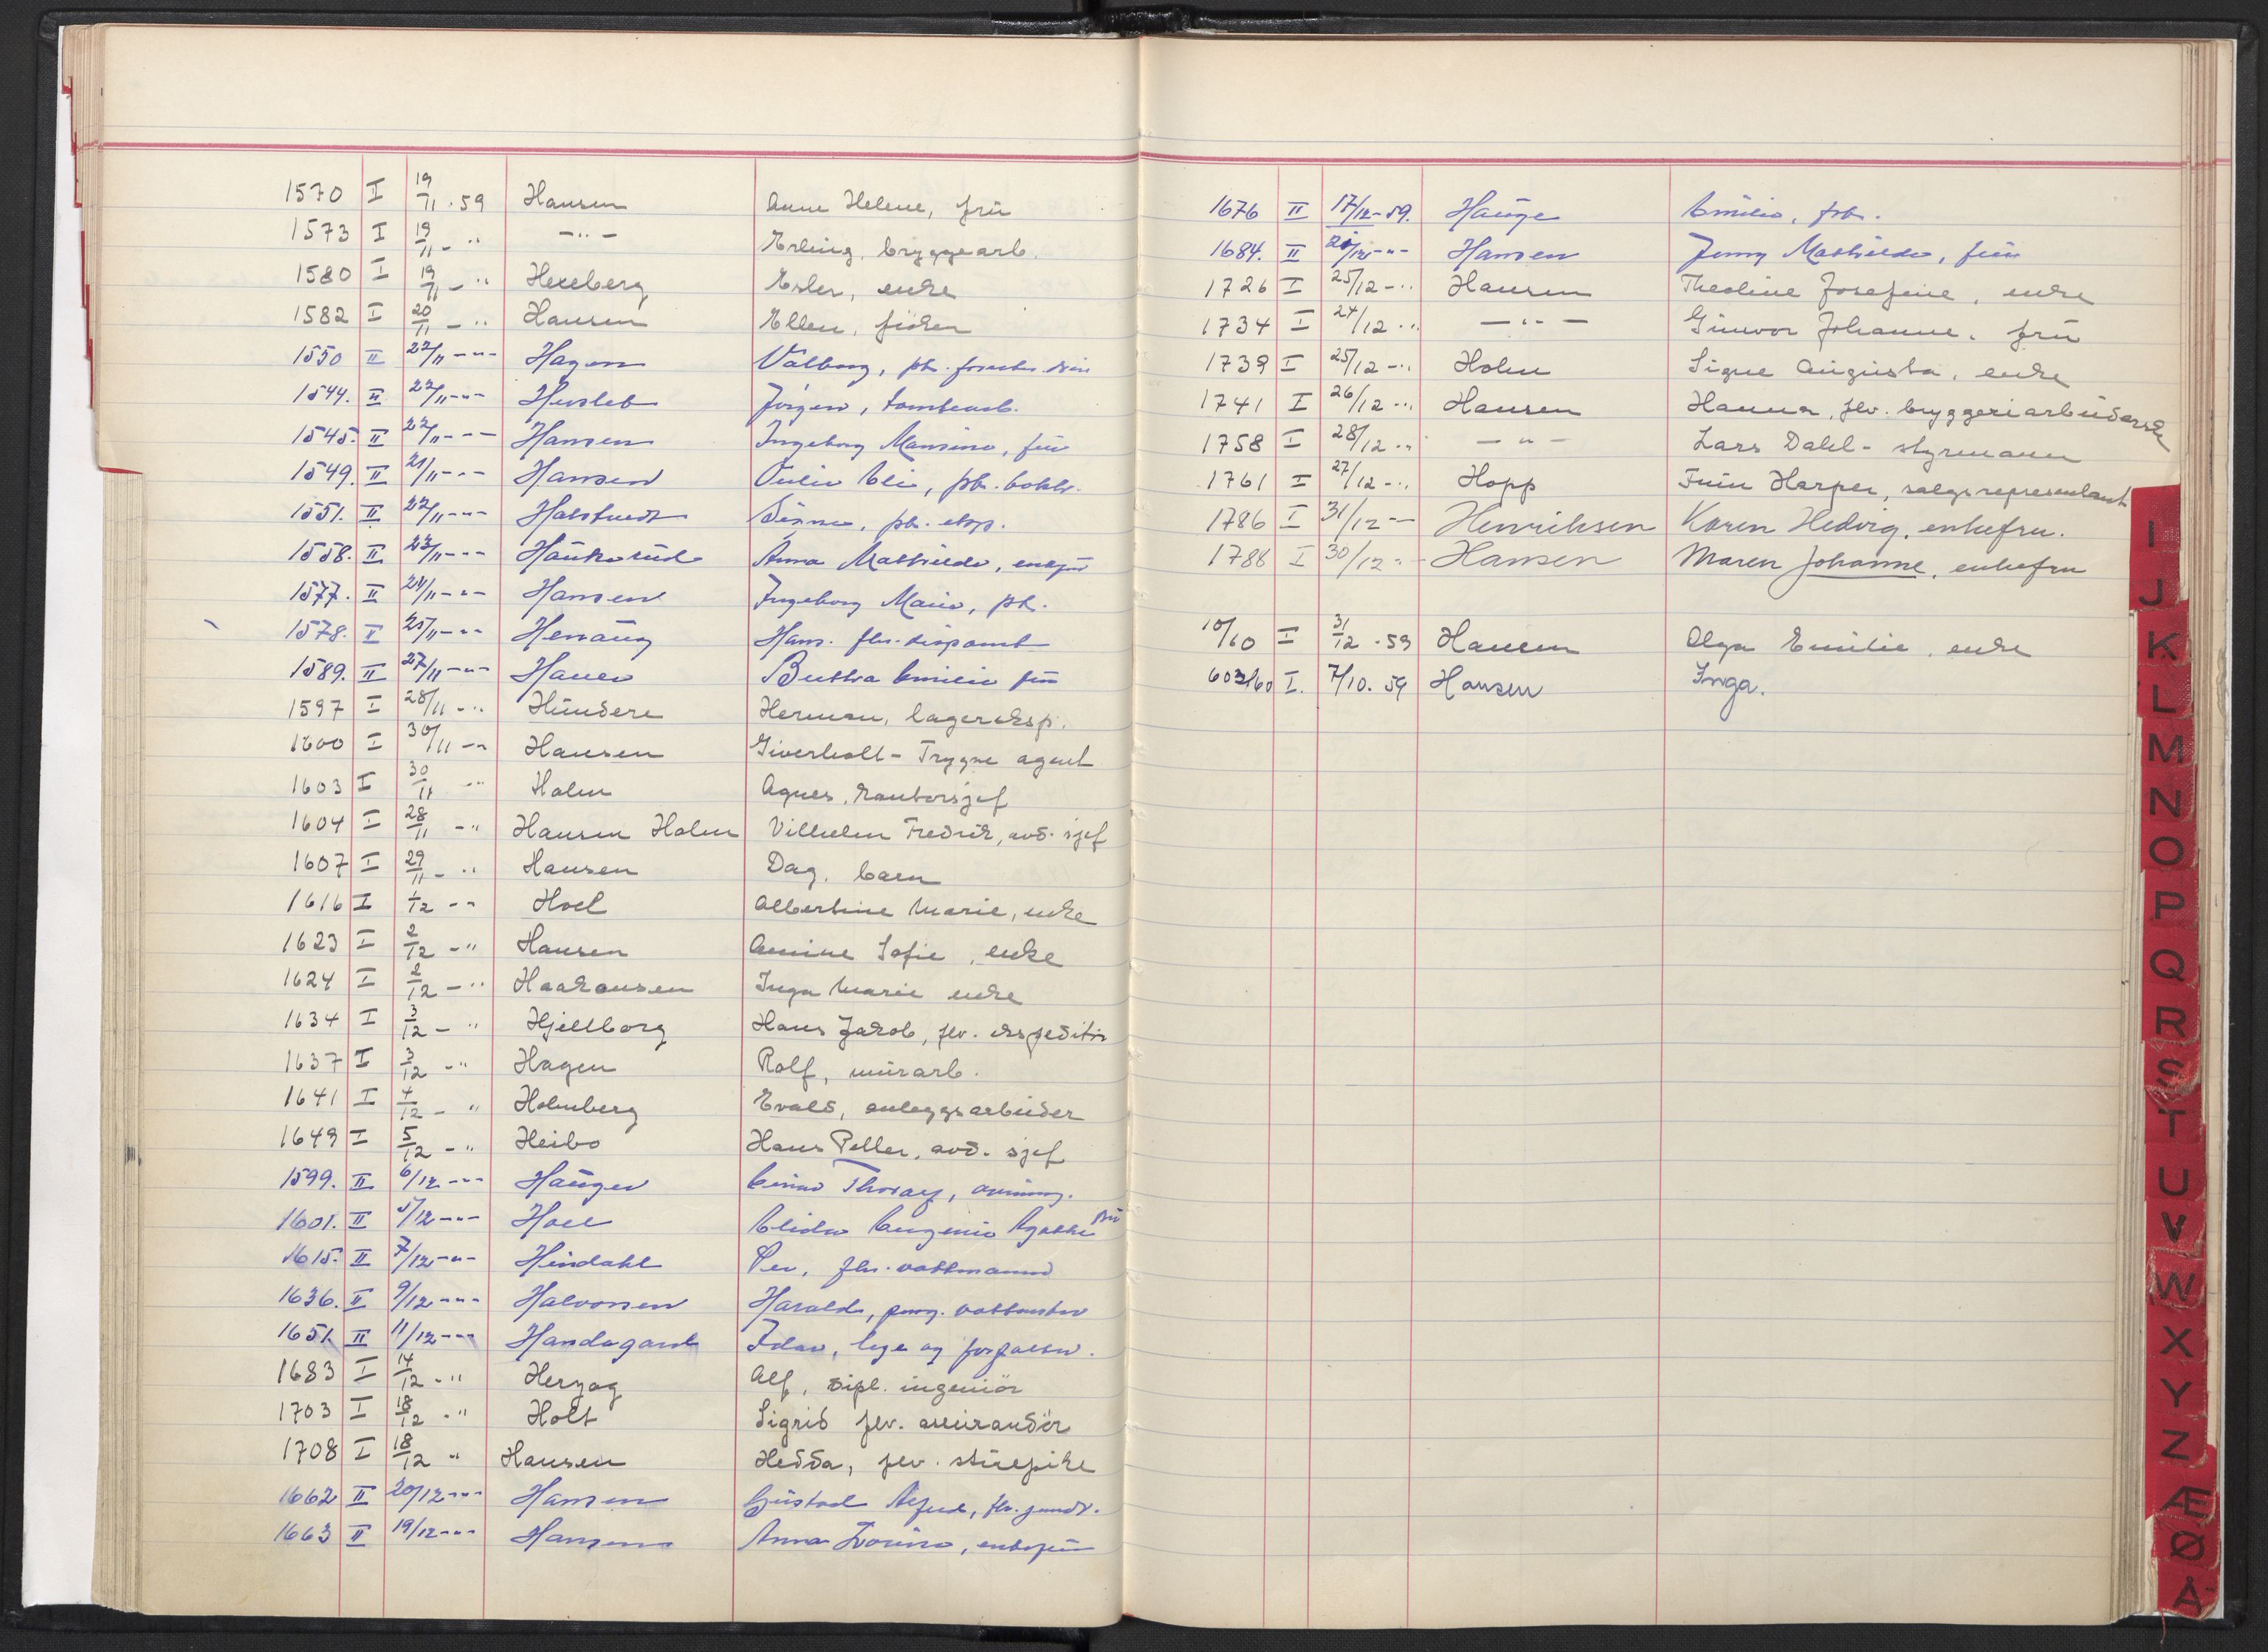 1570 I 19/11 . 59 Hansen Anne Helene, frü
1573 I 19/11 - " - " - Erling, bryggearb.
1580 I 19/11 - " Hexeberg Ester, enke
1582 I 20/11 - " Hansen Ellen, frøken
1550 II 22/11 - " - Hagen Valborg, pk.
1544. II 22/11 - " - Hersleb Jørgen,
1545. II 22/11 - " - Hansen Ingeborg, früe
1549. II 21/11 - " - Hansen
1551. II 22/11 - " - Signe, pk. eksp.
1558. II 23/11 - " - Haukerüd Anna Mathilde, enkefrü
1577. II 24/11 - " - Hansen Ingeborg Marie, pk.
1578. II 25/11 - " - Hans. fhv. disponent
1589. II 27/11 - " - Bertha Emilie frü
1597 I 28/11 - " Hündere Herman, lagereksp.
1600 I 30/11 - " Hansen Giverholt - Trygve agent
1603 I 30/11 - " Holm Agnes, kontorsjef
1604 I 28/11 - " Hansen Holm Vilhelm Fredrik, avd. sjef
1607 I 29/11 - " Hansen Dag, barn
1616 I 1/12 - " Hoel Albertine Marie, enke
1623 I 2/12 - " Hansen Amine Sofie, enke
1624 I 2/12 - " Haakonsen Inga Marie enke
1634 I 3/12 - " Hjellborg Hans Jakob, flv. ekspeditør
1637 I 3/12 - " Hagen Rolf, mürarb.
1641 I 4/12 - " Holmberg Evald, anleggsarbeider
1649 I 5/12 - " Heibo Hans Petter, avd. sjef
1599. II 6/12 - " - Haüger
1601. II 5/12 - " - Hoel Elida Eugenie Agathe frü
1615. II 7/12 - " - Hindahl Per, fhv. vaktmann
1636. II 9/12 - " - Halvorsen Harald,
1651. II 11/12 - " - Handagard Idar, lege og forfatter.
1683 I 14/12 - " Herzog Alf, dipl. ingeniør
1703 I 18/12 - " Holt Sigrid flv. assürandør
1708 I 18/12 " Hansen Hedda, flv. stüepike
1662 II 20/12 - " - Hansen Güstav
1663 II 19/12 - " - Hansen Anna, enkefrü
1676 II 17/12 - 59. Haüge Emilie, frk.
1684. II 21/12 - " - Hansen Jenny Mathilde, früe
1726 I 25/12 - " Hansen Theoline Josefine, enke
1734 I 24/12 . " - " - Günvor Johanne, frü
1739 I 25/12 - " Holm Signe Augusta, enke
1741 I 26/12 - " Hansen Hanna, flv. bryggeriarbeiderske
1758 I 28/12 - " - " - Lars Dahl - styrmann
1761 I 27/12 - " Hopp Finn Harper, salgsrepresentant
1786 I 31/12 - " Henriksen Karen Hedvig, enkefru.
1788 I 30/12 " - Hansen Maren Johanne, enkefru
10/60 I 31/12 . 59 Hansen Olga Emilie, enke
603/60 I. 7/10. 59 Hansen Inga.
I
J
K
L
M
N
O
P
Q
R
S
T
U
V
W
X
Y
Z
Æ
Ø
Å